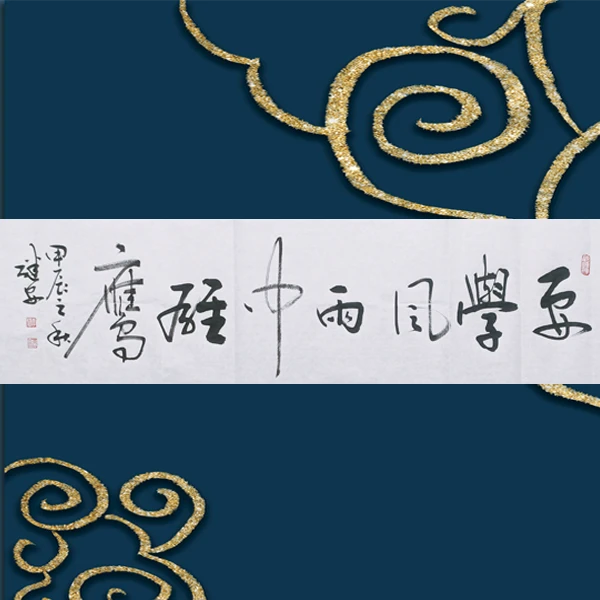 要學風雨中雄鷹
甲辰之秋